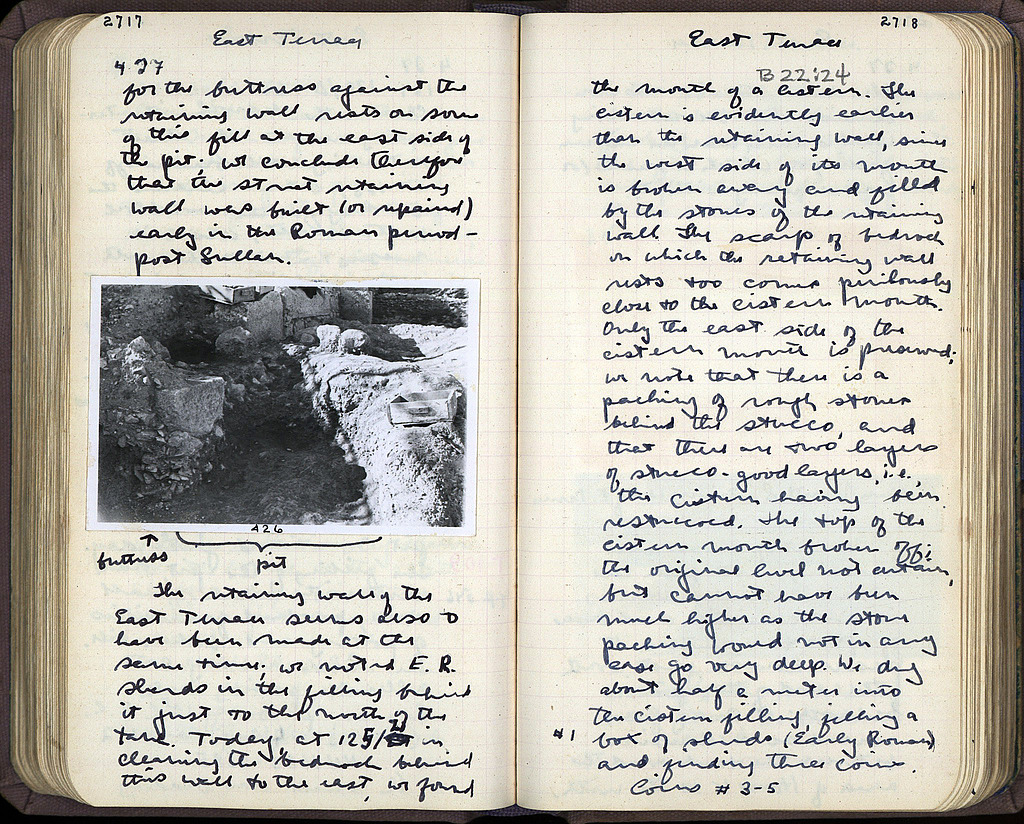 2717
East Terrace
4 27
for the buttress against the
retaining wall rests on some
of this fill at the east side of
the pit; we conclude therefore
that the street retaining
wall was built (or repaired)
early in the Roman period -
post Sullan.
426
buttress
pit
The retaining wall of the
East Terrace seems also to
have been made at the
same time; we noted E. R.
sherds in the filling behind
it just to the north of the
tank. Today, at 125/ in
cleaning the bedrock behind
this wall to the east, we found
2718
East Terrace
B 22:24
the mouth of a cistern. The
cistern is evidently earlier
than the retaining wall, since
the west side of its mouth
is broken away and filled
by the stones of the retaining
wall. The scarp of bedrock
on which the retaining wall
rests too comes perilously
close to the cistern mouth.
Only the east side of the
cistern mouth is preserved;
we note that there is a
packing of rough stones
behind the stucco, and
that there are two layers
of stucco - good layers, i.e.,
the cistern having been
restuccoed. The top of the
cistern mouth broken off;
the original level not certain,
but cannot have been
much higher as the stone
packing would not in any
case go very deep. We dug
about half a meter into
the cistern filling, filling a
#1 box of sherds (Early Roman)
and finding three coins.
Coins # 3-5